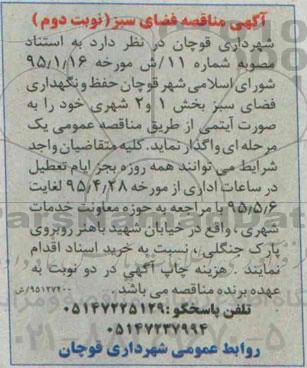 آگهی مناقصه فضای سبز (نوبت دوم)
شهرداری قوچان در نظر دارد به استناد
مصوبه شماره ۱۱/ش مورخه ۹۵/۱/۱۶
شورای اسلامی شهر قوچان حفظ و نگهداری
فضای سبز بخش ۱ و۲ شهری خود را به
صورت آیتمی از طریق مناقصه عمومی یک
مرحله ای واگذار نماید. کلیه متقاضیان واجد
شرایط می توانند همه روزه بجز ایام تعطیل
در ساعات اداری از مورخه ۹۵/۴/۲۸ لغایت
۹۵/۵/۶ با مراجعه به حوزه معاونت خدمات
شهری، واقع در خیابان شهید باهنر روبروی
پارک جنگلی، نسبت به خرید اسناد اقدام
نمایند . هزینه چاپ آگهی در دو نوبت به
عهده برنده مناقصه می باشد. ۹۵۱۲۷۲۰۰/ش
تلفن پاسخگو: ۰۵۱۴۷۲۲۵۱۲۹
۰۵۱۴۷۲۳۷۹۹۴
روابط عمومی شهرداری قوچان